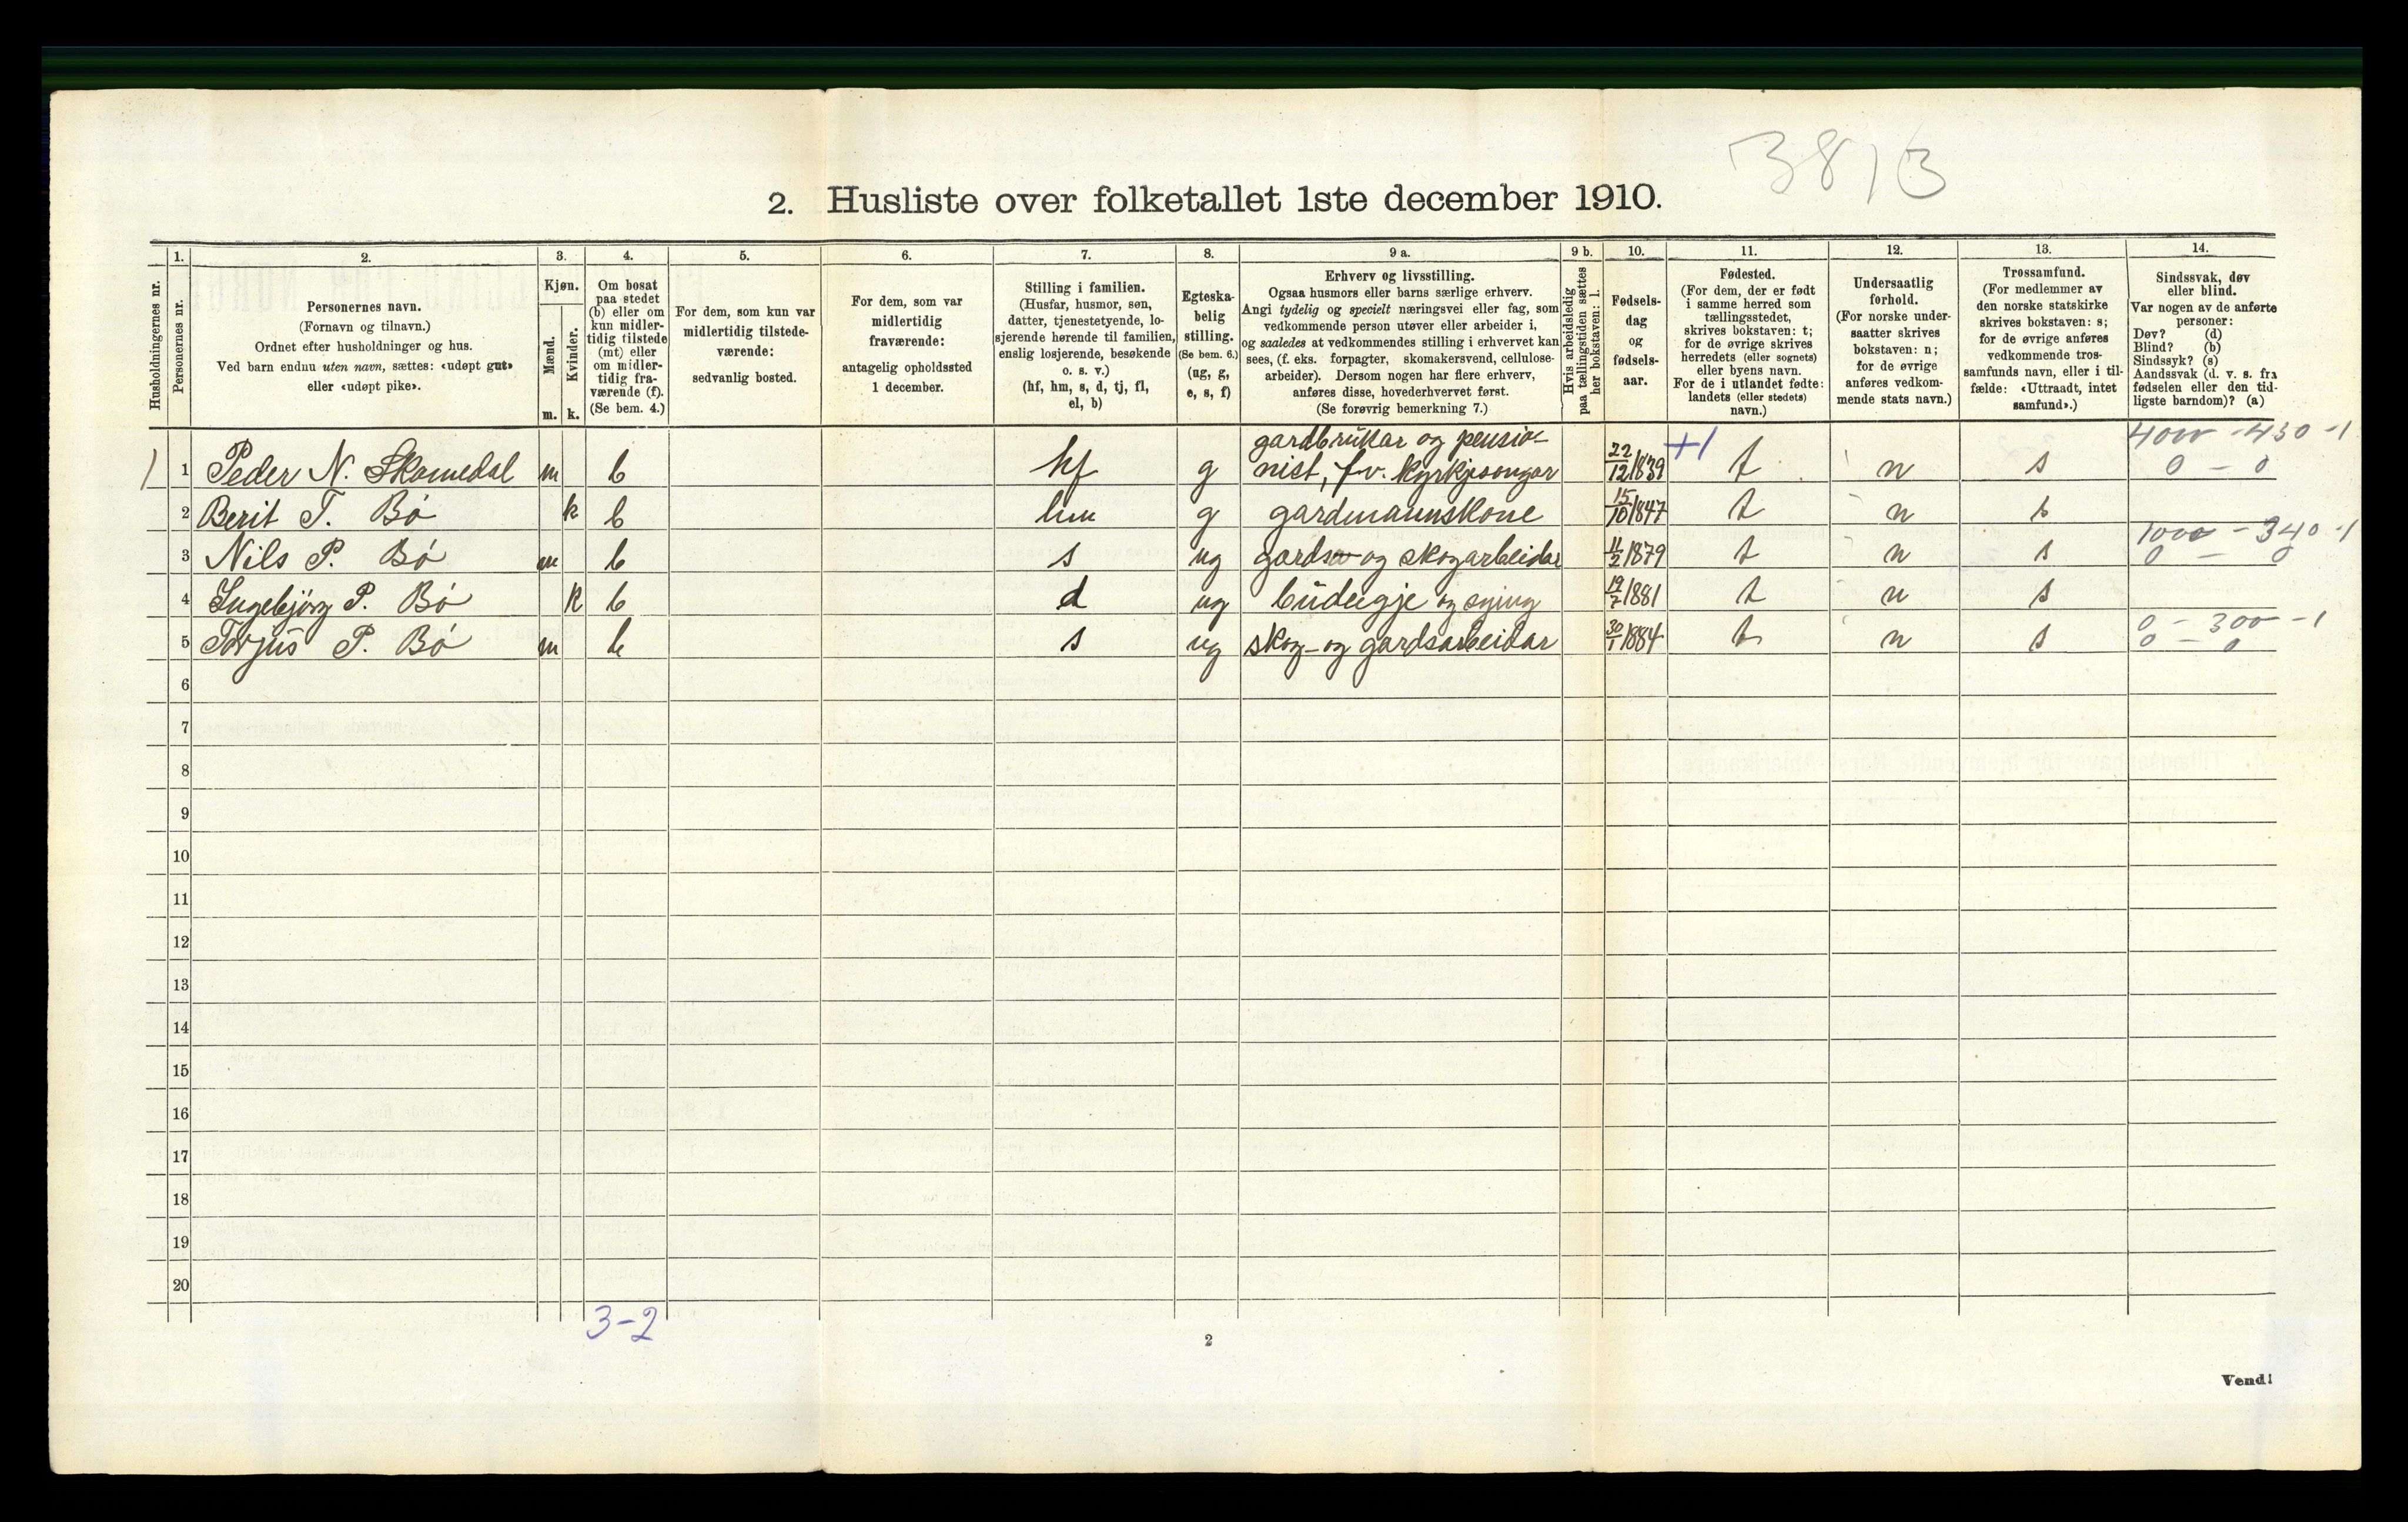 3813
2. Husliste over folketallet 1ste december 1910.
Husholdningernes nr.
1.
Personernes nr.
2.
Personernes navn.
(Fornavn og tilnavn.)
Ordnet efter husholdninger og hus.
Ved barn endnu uten navn, sættes: «udøpt gut»
eller «udøpt pike».
3.
Kjøn.
Mænd.
Kvinder.
m. k.
4.
Om bosat
paa stedet
(b) eller om
kun midler-
tidig tilstede
(mt) eller
om midler-
tidig fra-
værende (f).
(Se bem. 4.)
5.
For dem, som kun var
midlertidig tilstede-
værende:
sedvanlig bosted.
6.
For dem, som var
midlertidig
fraværende:
antagelig opholdssted
1 december.
7.
Stilling i familien.
(Husfar, husmor, søn,
datter, tjenestetyende, lo-
sjerende hørende til familien,
enslig losjerende, besøkende
o. s. v.)
(hf, hm, s, d, tj, fl,
el, b)
8.
Egteska-
belig
stilling.
(Se bem. 6.)
(ug, g,
e, s, f)
9 a.
Erhverv og livsstilling.
Ogsaa husmors eller barns særlige erhverv.
Angi tydelig og specielt næringsvei eller fag, som
vedkommende person utøver eller arbeider i,
og saaledes at vedkommendes stilling i erhvervet kan
sees, (f. eks. forpagter, skomakersvend, cellulose-
arbeider). Dersom nogen har flere erhverv,
anføres disse, hovederhvervet først.
(Se forøvrig bemerkning 7.)
9 b.
Hvis arbeidsledig
paa tællingstiden sættes
her bokstaven: l.
10.
Fødsels-
dag
og
fødsels-
aar.
11.
Fødested.
(For dem, der er født
i samme herred som
tællingsstedet,
skrives bokstaven: t;
for de øvrige skrives
herredets (eller sognets)
eller byens navn.
For de i utlandet fødte:
landets (eller stedets)
navn.)
12.
Undersaatlig
forhold.
(For norske under-
saatter skrives
bokstaven: n;
for de øvrige
anføres vedkom-
mende stats navn.)
13.
Trossamfund.
(For medlemmer av
den norske statskirke
skrives bokstaven: s;
for de øvrige anføres
vedkommende tros-
samfunds navn, eller i til-
fælde: «Uttraadt, intet
samfund».)
14.
Sindssvak, døv
eller blind.
Var nogen av de anførte
personer:
Døv? (d)
Blind? (b)
Sindssyk? (s)
Aandssvak (d. v. s. fra
fødselen eller den tid-
ligste barndom)? (a)
gardbrukar og pensio- +1 4000 - 430 - 1
1 1 Peder N. Skomedal m b hf g nist, fv. kyrkjesongar 22/12 1839 t n s 0 - 0
2 Berit T. Bø k b hm g gardmannskone 15/10 1847 t n s
1000 - 340 - 1
3 Nils P. Bø m b s ug gards- og skogarbeidar 11/2 1879 t n s 0 - 0
4 Ingebjörg P. Bø k b d ug budeigje og sying 19/7 1881 t n s
0 - 300 - 1
5 Torjus P. Bø m b s ug skog- og gardsarbeidar 30/1 1884 t n s 0 - 0
6
7
8
9
10
11
12
13
14
15
16
17
18
19
20
3-2
2
Vend!